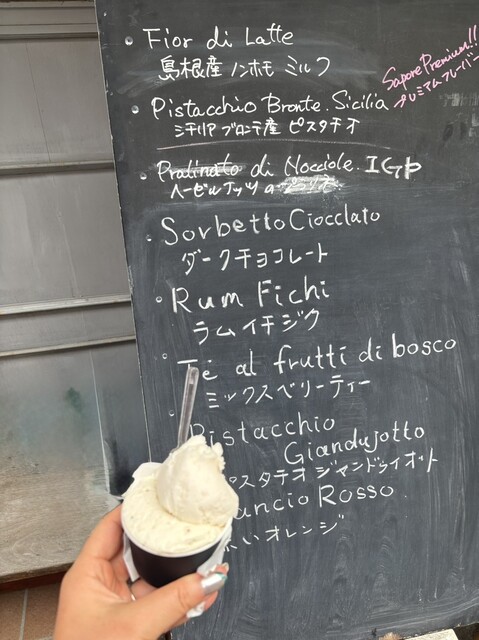 Fior di Latte
島根産 ノンホモ ミルク
Sapore Premium!!
プレミアムフレーバー
Pistacchio Bronte. Sicilia
シチリア ブロンテ産 ピスタチオ
Pralinato di Nocciole. IGP
ヘーゼルナッツの
Sorbetto Cioccolato
ダークチョコレート
Rum Fichi
ラムイチジク
Té al frutti di bosco
ミックスベリーティー
Pistacchio
Giandujotto
ピスタチオ ジャンドゥイオット
ancio Rosso
いオレンジ